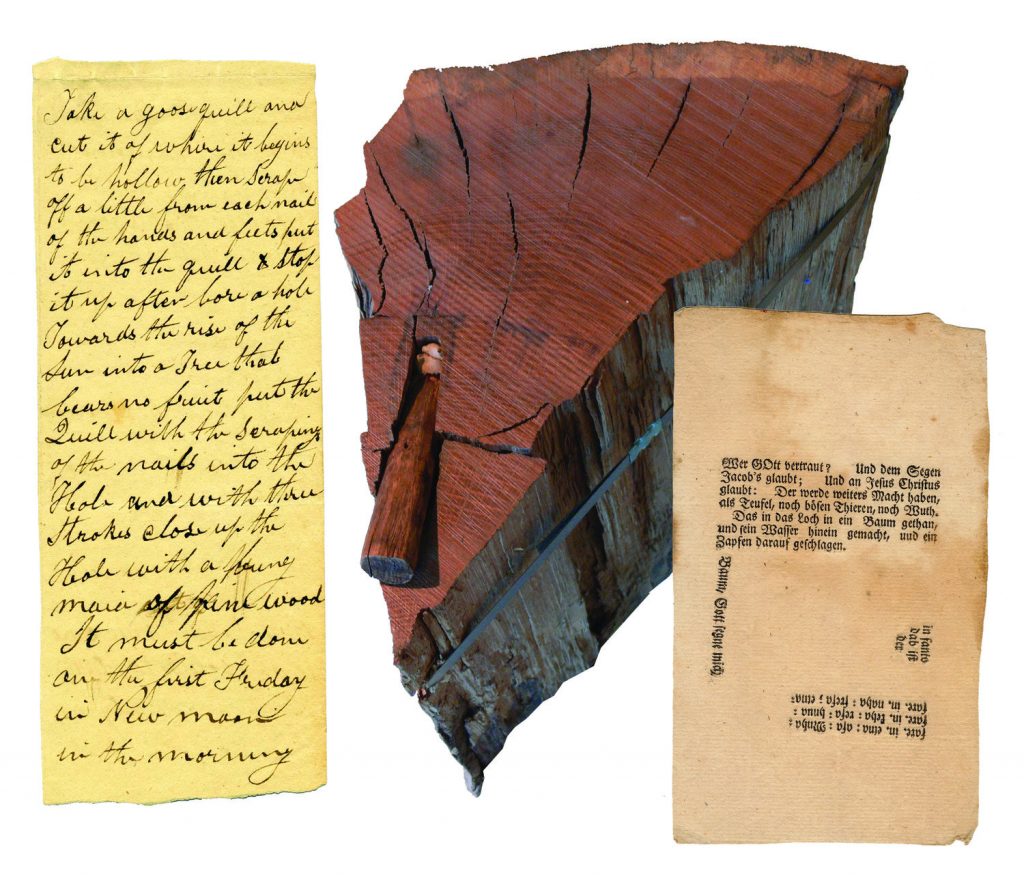 Take a goose quill and
cut it of where it begins
to be hollow then Scrape
off a little from each nail
of the hands and feets put
it into the quill & stop
it up after bore a hole
Towards the rise of the
Sun into a Tree that
bears no fruit put the
Quill with the Scraping
of the nails into the
Hole and with three
Strokes close up the
Hole with a
of pine wood
It must be done
on the first Friday
in New moon
in the morning
Wer GOtt vertraut? Und dem Segen
Jacob's glaubt; Und an Jesus Christus
glaubt: Der werde weiters Macht haben,
als Teufel, noch bösen Thieren, noch Wuth.
Das in das Loch in ein Baum gethan,
und sein Wasser hinein gemacht, und ein
Zapfen darauf geschlagen.
Baum, Gott segne mich,
dab ist
der